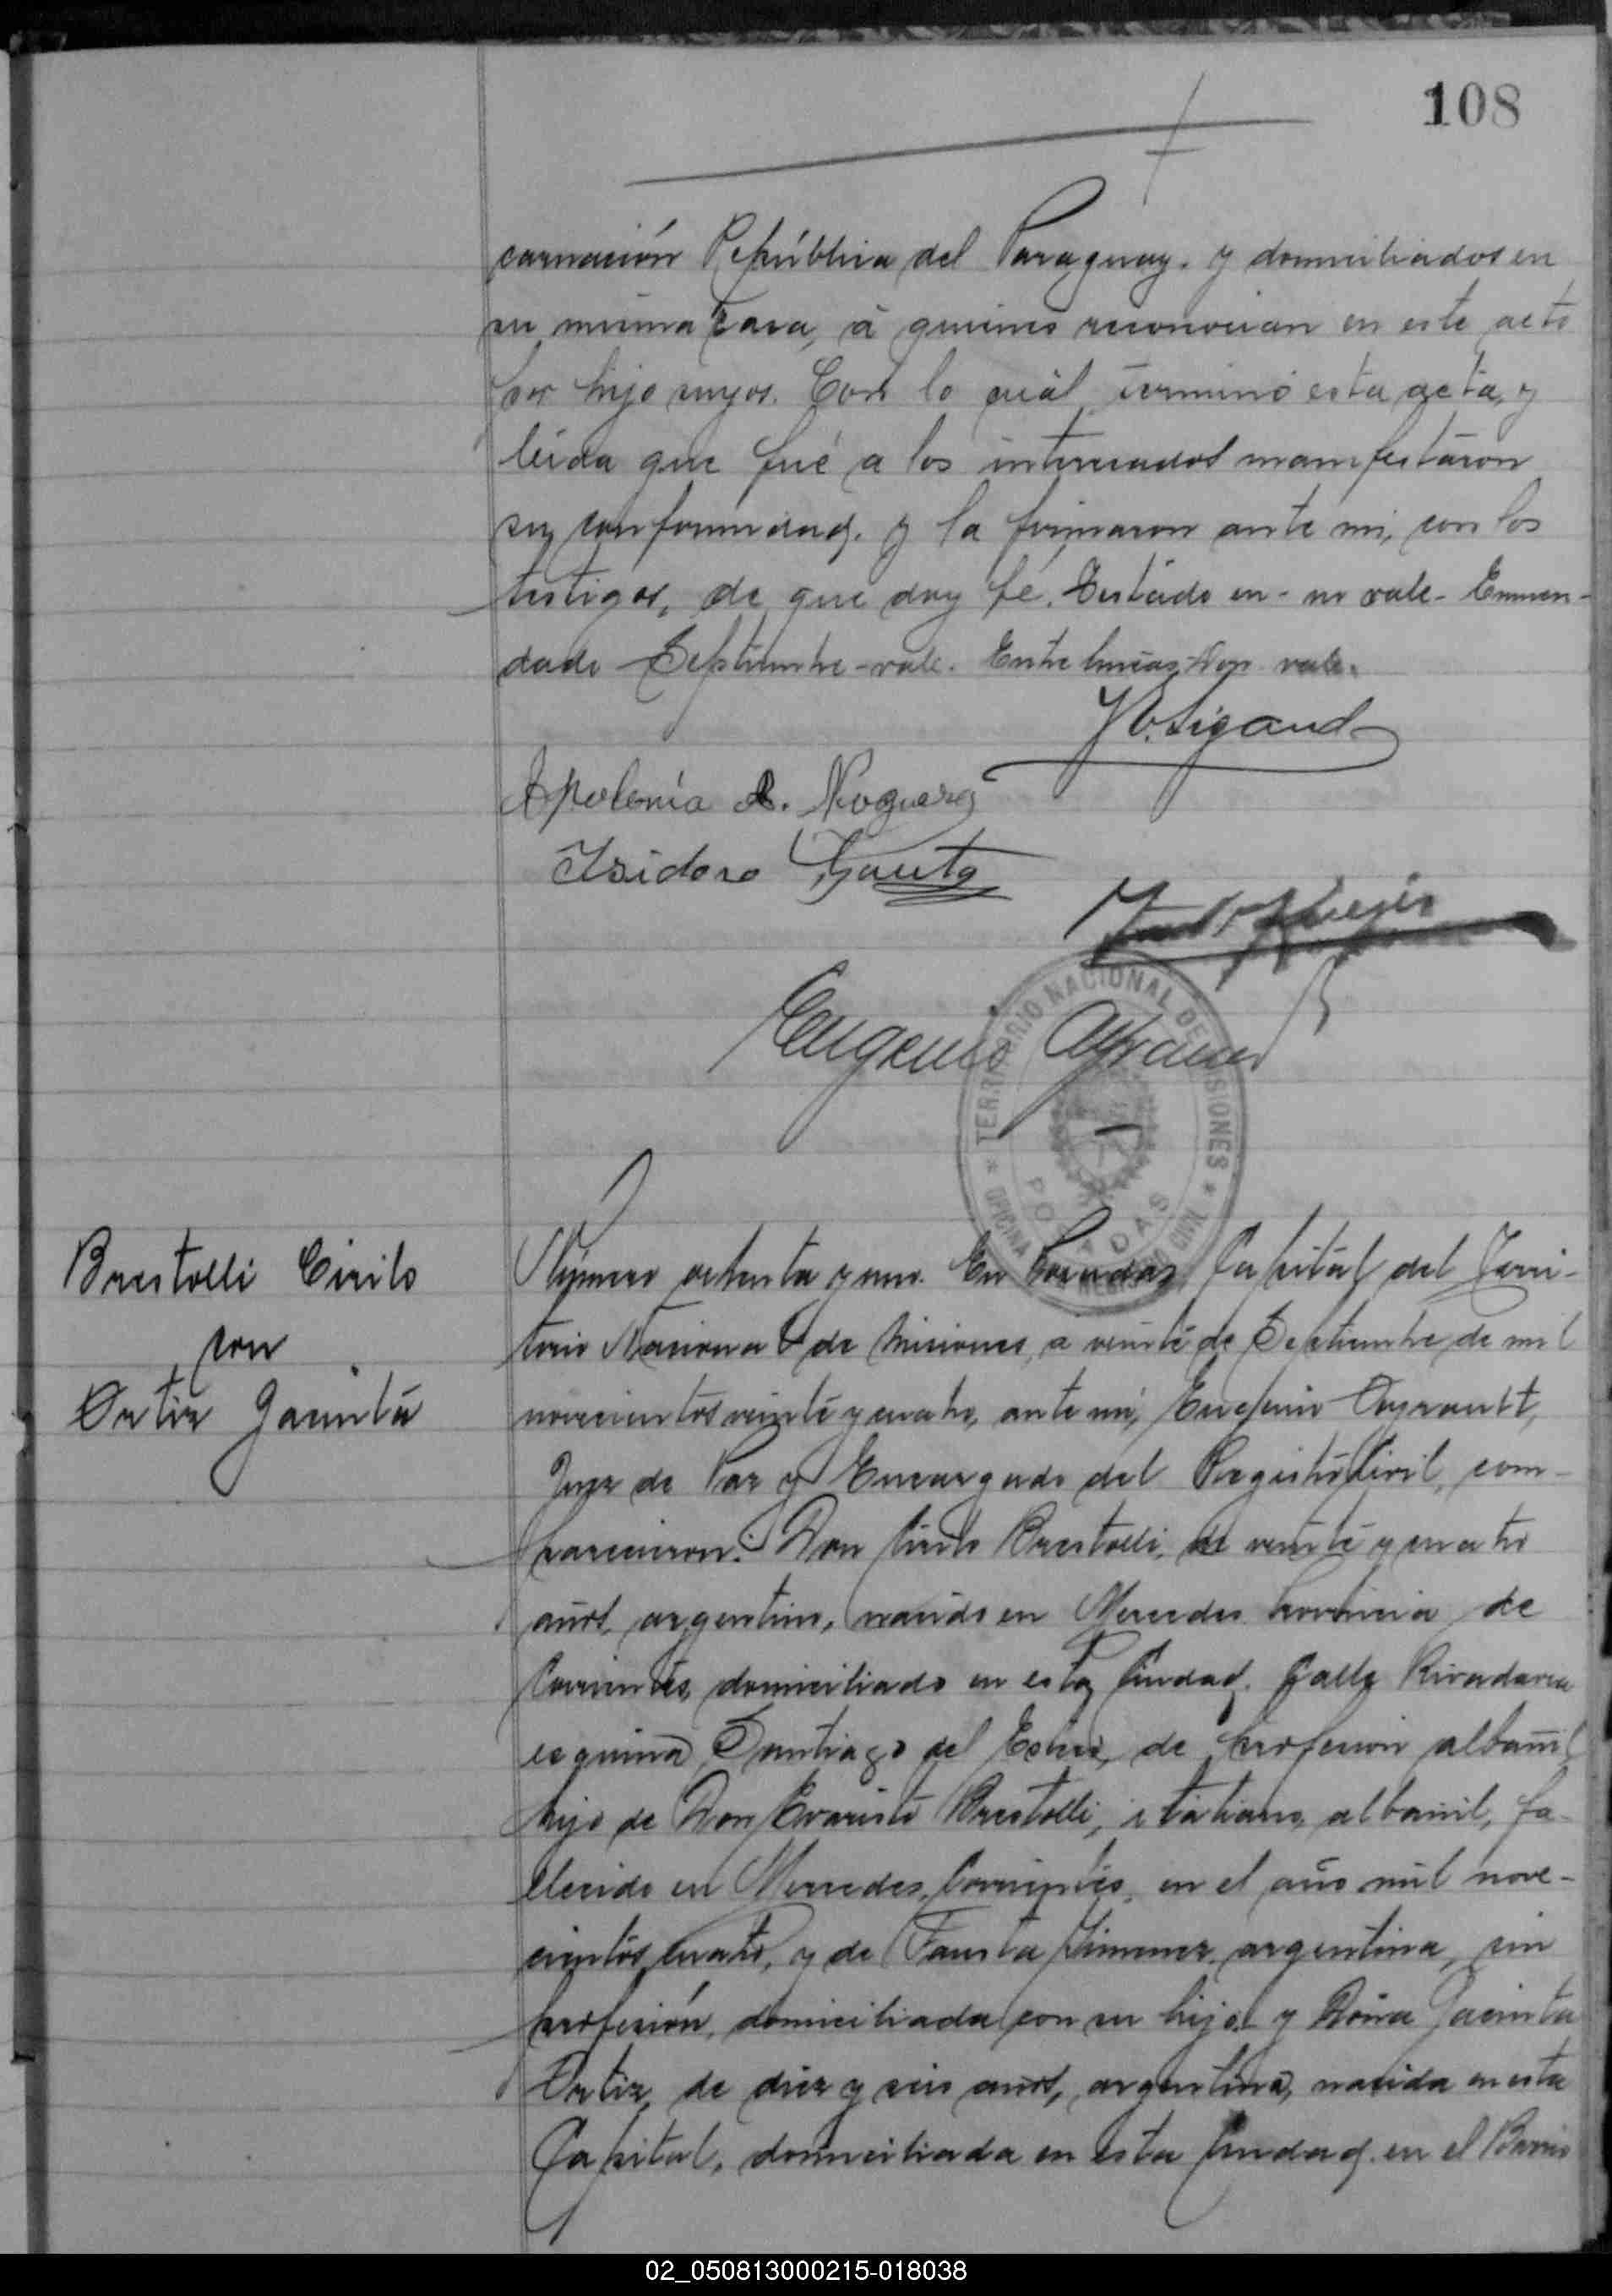 108
carnación República del Paraguay. y domiciliados en
su misma casa, á quienes reconocian en este acto
por hijo suyos. Con lo cuál terminó esta acta, y
leida que fué a los interesados manifestáron
su conformidad. y la firmaron ante mi, con los
testigos, de que doy fé. Testado en - no vale - Enmen-
dado Septiembre - vale. Entre lineas - Don vale.
Apolonia R. Noguera
Isidoro Gauto
Eugenio Ayrault
TERRITORIO NACIONAL DE MISIONES
OFICINA REGISTRO CIVIL
POSADAS
Brestolli Cirilo
con
Ortiz Jacinta
Número ochenta y uno. En Posadas Capital del Terri-
torio Nacional de Misiones, a veinte de Septiembre de mil
novecientos veinte y cuatro, ante mi, Eugenio Ayrault,
Juez de Paz y Encargado del Registro Civil, com-
parecieron: Don Cirilo Brestolli, de veinte y cuatro
años, argentino, nacido en Mercedes Provincia de
Corrientes, domiciliado en esta Ciudad. Calle Rivadavia
esquina Santiago del Estero, de profesion albañil
hijo de Don Evaristo Brestolli, italiano, albañil, fa-
llecido en Mercedes, Corrientes, en el año mil nove-
cientos cuatro, y de Fausta Jimenez, argentina, sin
profesión, domiciliada con su hijo. y Doña Jacinta
Ortiz, de diez y seis años, argentina, nacida en esta
Capital, domiciliada en esta Ciudad. en el Barrio
02_050813000215-018038